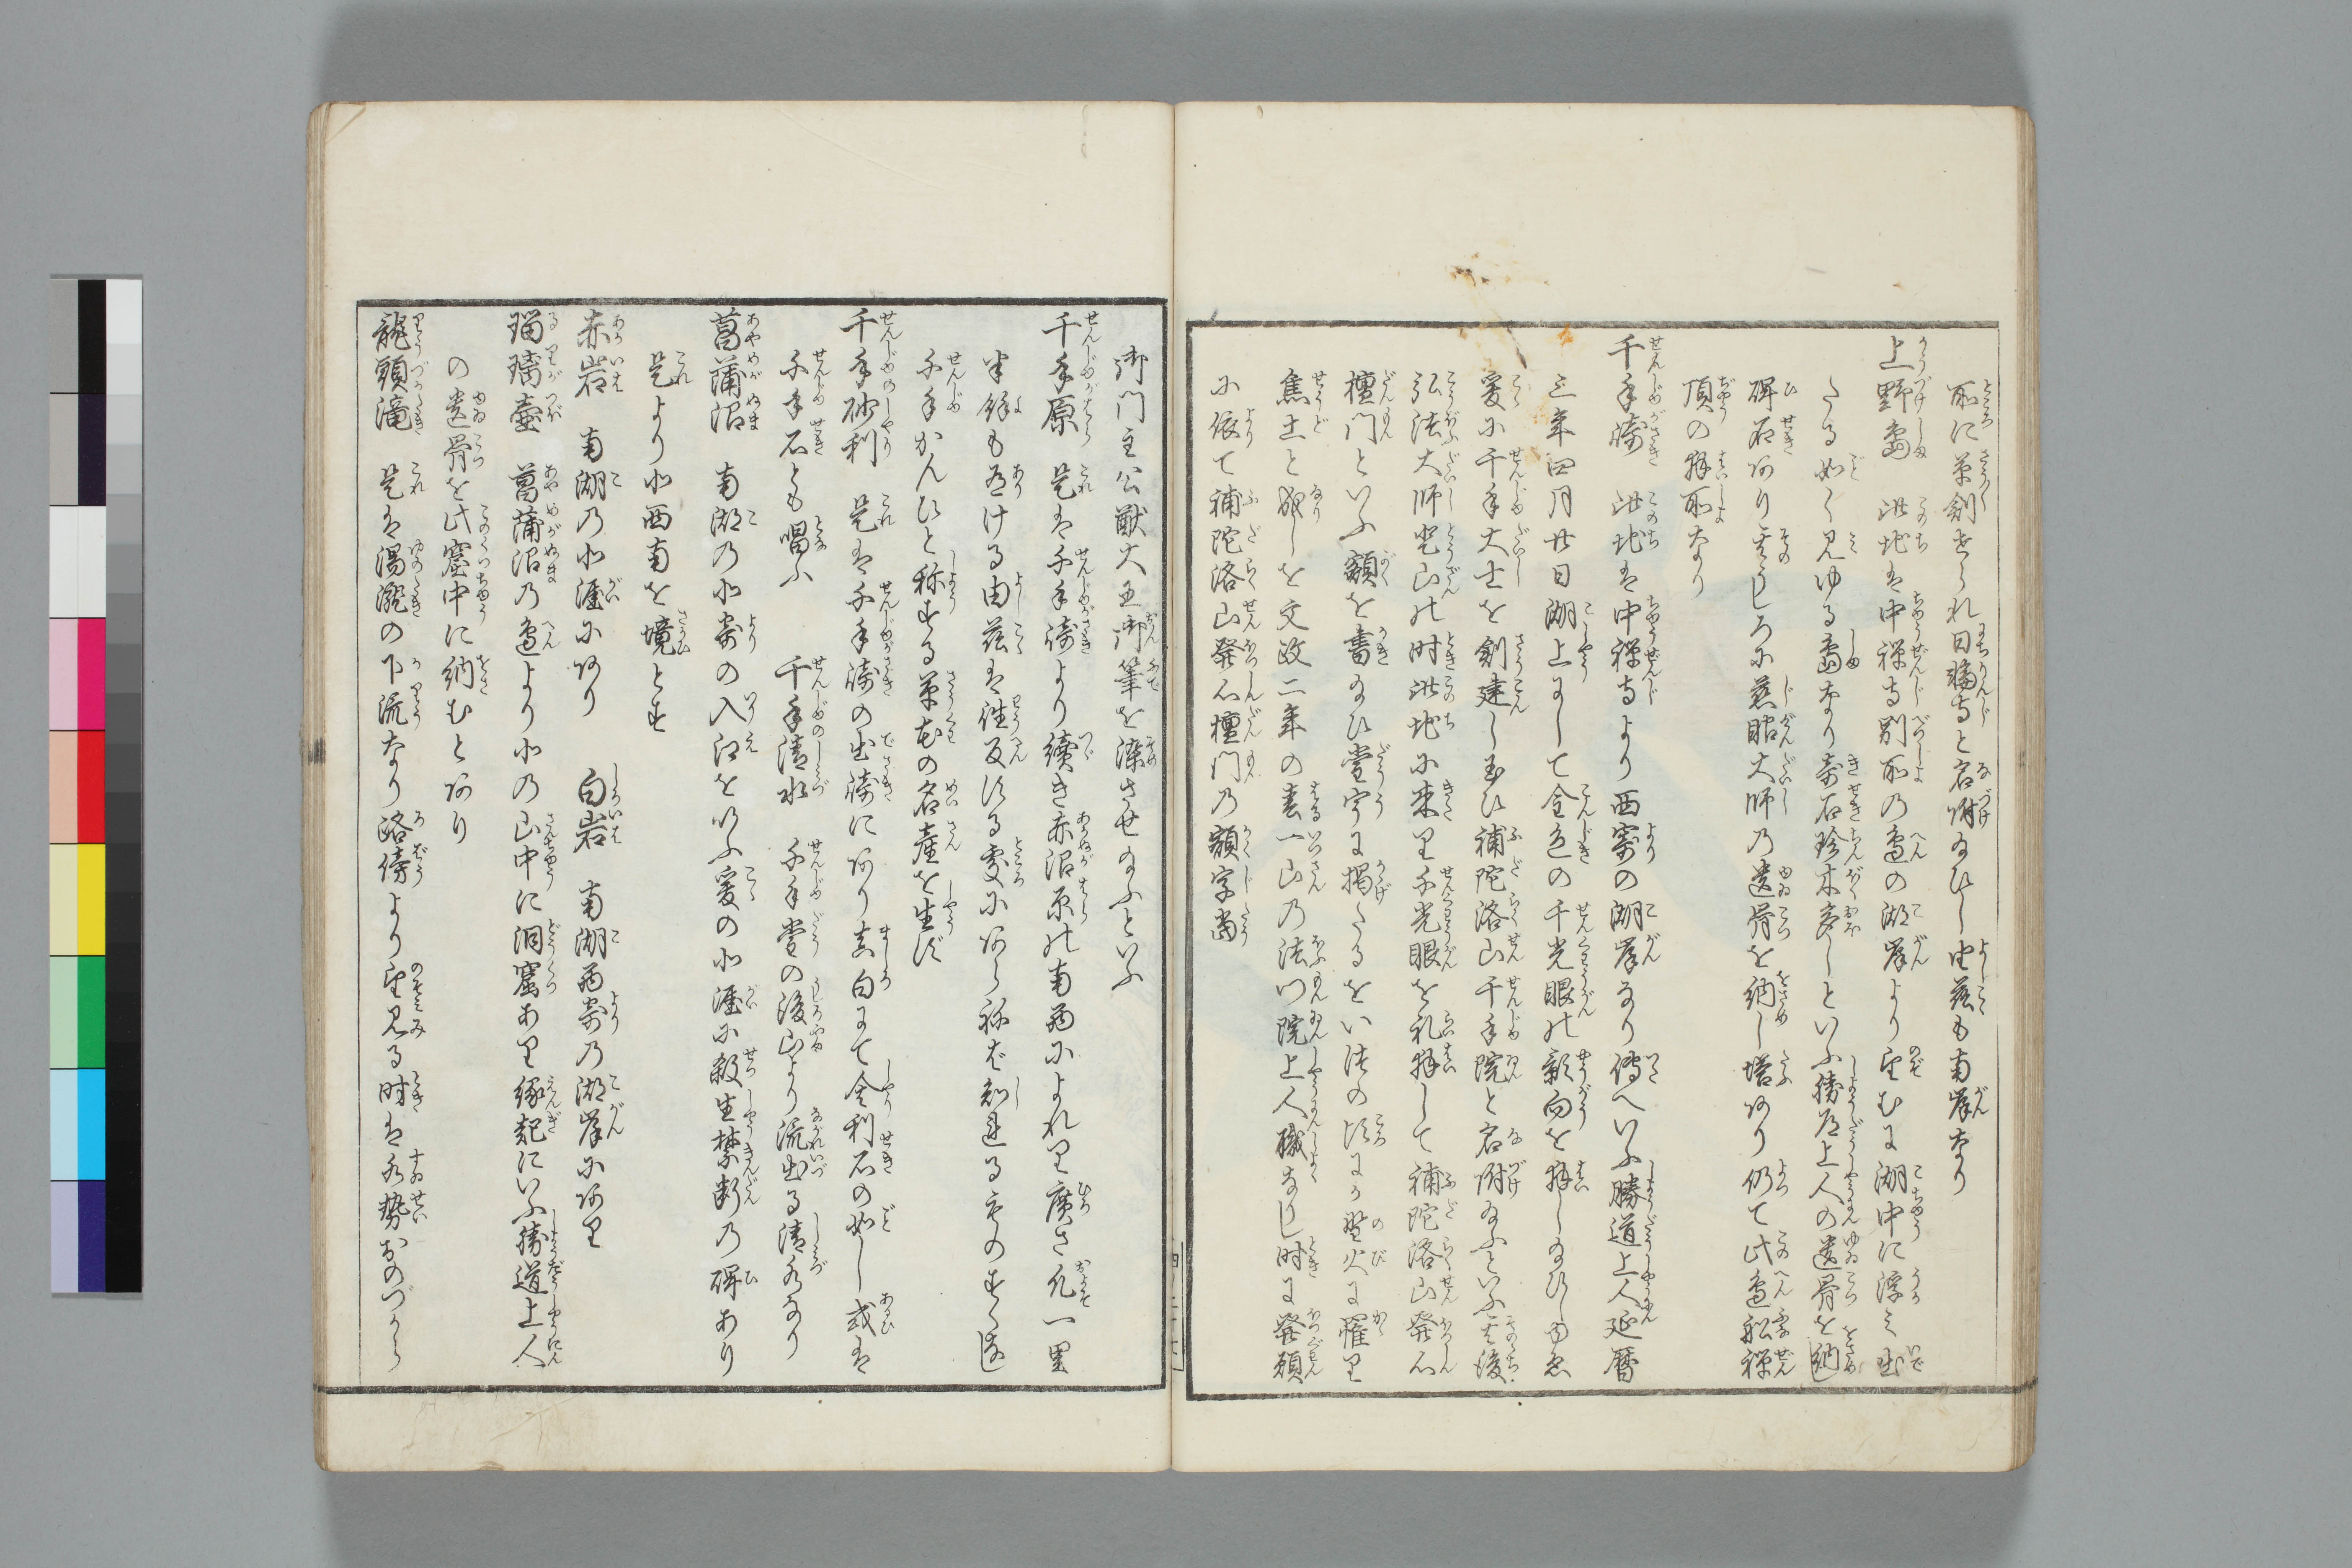 所に草創せられ日輪寺と名附給ひし由茲も南岸なり
上野島　此地は中禅寺別所の辺の湖岸より望むに湖中に浮み出
たる如く見ゆる島なり奇石珍木多しといふ勝道上人の遺骨を納し
碑石あり其うしろに慈眼大師の遺骨を納し塔あり仍て此辺船禅
頂の拝所なり
千手崎　此地は中禅寺より西寄の湖岸なり傳へいふ勝道上人延暦
三年四月廿日湖上にして金色の千光眼の影向を拝し給ひしゆゑ
爰に千手大士を創建し玉ひ補陀洛山千手院と名附給ふといふ其後
弘法大師登山の時此地に来り千光眼を礼拝して補陀洛山発心
檀門といふ額を書給ひ堂宇に掲たるをいつの頃にか野火に罹り
焦土と成しを文政二年の春一山の法門院上人職なりし時に発願
に依て補陀洛山発心檀門の額字当
御門主公猷大王御筆を染させ給ふといふ
千手原　是は千手崎より續き赤沼原の南西によれり廣さ凡一里
半餘も有ける由茲は往反する處にあらねば知違る者のすくなし
千手かんひと称する草花の名産を生ず
千手砂利　是は千手崎の出崎にあり真白にて舎利石の如し或は
千手石とも唱ふ　千手清水　千手堂の後山より流出る清水なり
菖蒲沼　南湖の北寄の入江をいふ爰の北涯に殺生禁断の碑あり
是より北西南を境とす
赤岩　南湖の北涯にあり　白岩　南湖西寄の湖岸にあり
瑠璃壷　菖蒲沼の辺より北の山中に洞窟あり縁起にいふ勝道上人
の遺骨を此窟中に納むとあり
龍頭滝　是は湯瀧の下流なり路傍より望見る時は水勢おのづから